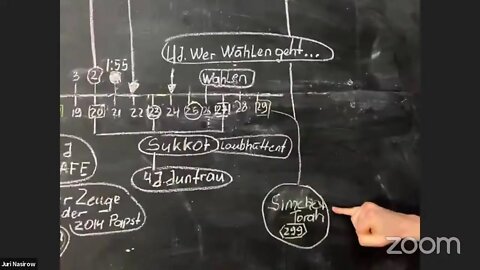 4J. Wer Wählen geht...
1:55
Wahlen
3 2
19 20 21 22 23 24 25 26 27 28 29
Sukkot Laubhüttenf
J
AFE
4J. Juntrau
r Zeuge
der
2014 Papst
Simchat
Torah
299
zoom
Juri Nasirow